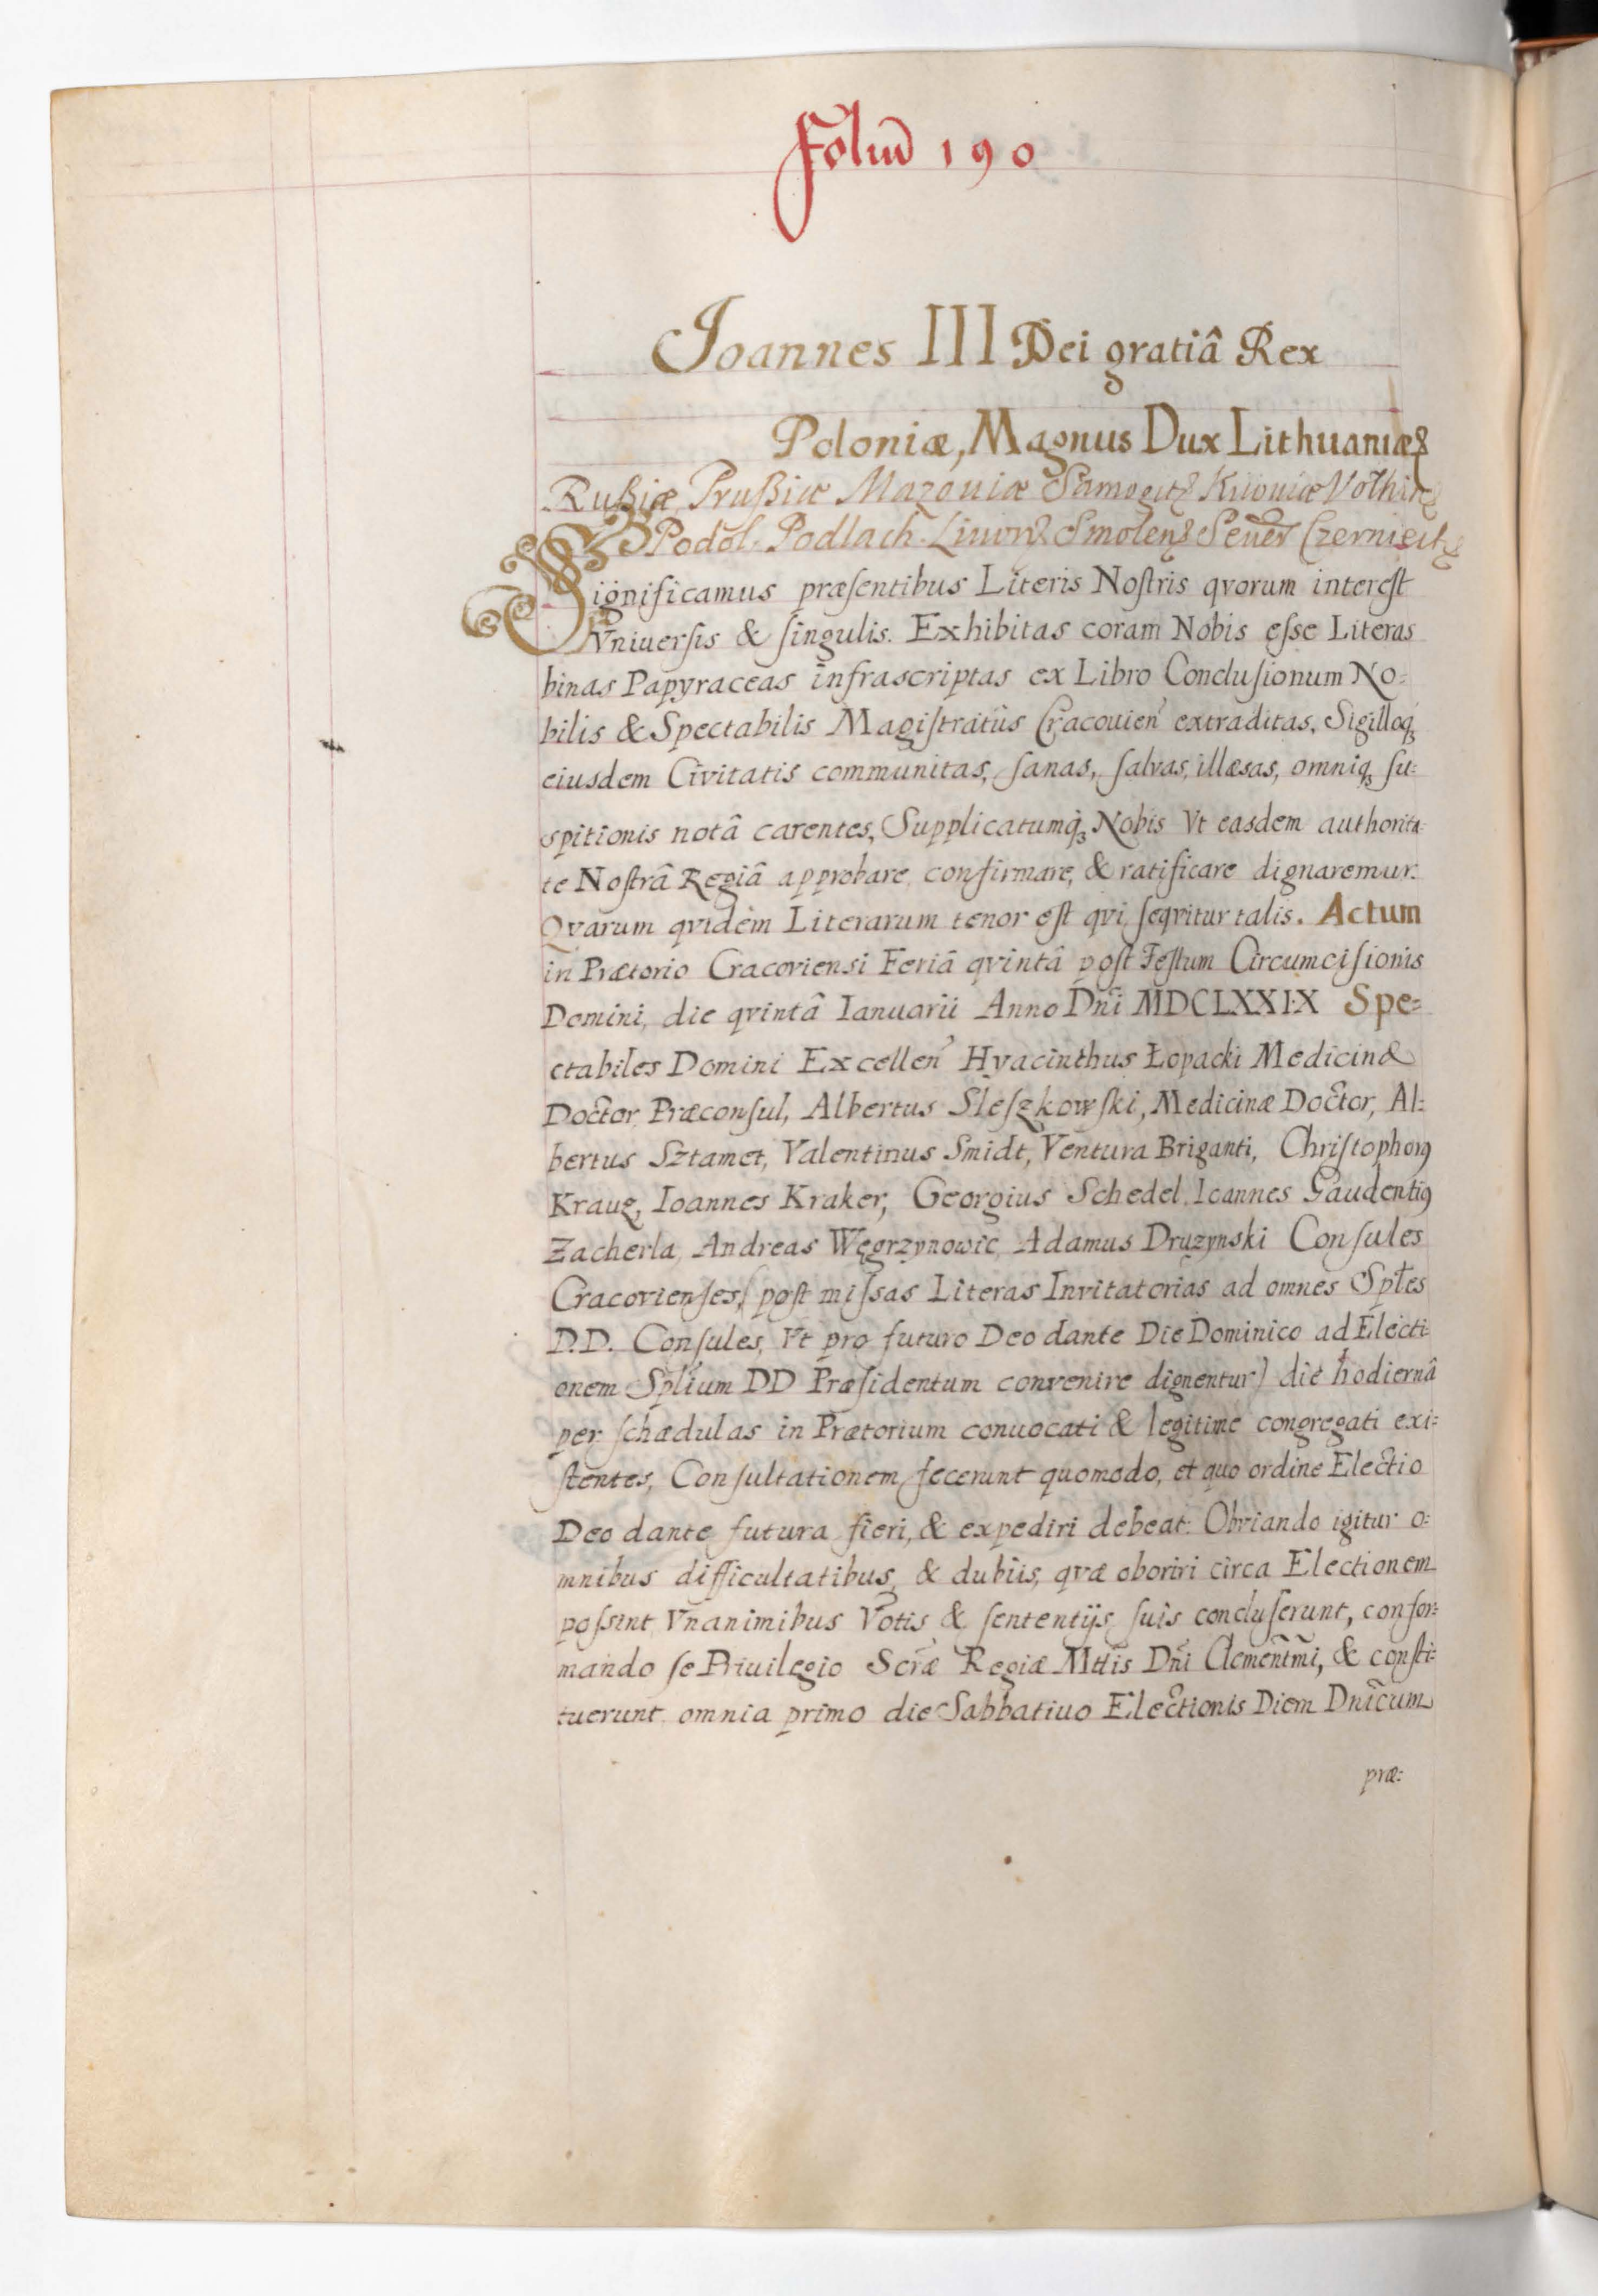 Foliū 190
Joannes III Dei gratiâ Rex
Poloniæ, Magnus Dux Lithuaniæ
Rußiæ, Prußiæ Mazouiæ Samogit Kiiouiæ Volhin
Podol. Podlach. Liuon Smolen Seuer Czerniech
Significamus præſentibus Literis Noſtris qvorum intereſt
Vniuerſis & ſingulis. Exhibitas coram Nobis eſse Literas
binas Papyraceas infrascriptas ex Libro Concluſionum No:
bilis & Spectabilis Magiſtratûs Cracouien̉ extraditas, Sigilloq;
eiusdem Civitatis communitas, ſanas, ſalvas, illæsas, omniq; ſu:
spitionis notâ carentes, Supplicatumq; Nobis Vt easdem authorita:
te Noſtrâ Regiâ approbare, confirmare, & ratificare dignaremur.
Qvarum qvidem Literarum tenor eſt qvi ſeqvitur talis. Actum
in Prætorio Cracoviensi Feriâ qvintâ poſt Feſtum Circumciſionis
Domini, die qvintâ Ianuarii Anno Dnĩ MDCLXXIX Spe=
ctabiles Domini Excellen̉ Hyacinthus Łopacki Medicinæ
Doctor Præconſul, Albertus Sleſzkowſki, Medicinæ Doctor, Al:
bertus Sztamet, Valentinus Smidt, Ventura Briganti, Chriſtophorꝰ
Krauz, Ioannes Kraker, Georgius Schedel, Ioannes Gaudentiꝰ
Zacherla, Andreas Węgrzynowic, Adamus Druzynski Conſules
Cracovienſes, (poſt miſsas Literas Invitatorias ad omnes Sptes
D.D. Conſules, Vt pro futuro Deo dante Die Dominico ad Electi
onem Splium DD Præſidentum convenire dignentur) die hodiernâ
per ſchædulas in Prætorium conuocati & legitime congregati exi:
ſtentes, Conſultationem fecerunt quomodo, et quo ordine Electio
Deo dante futura fieri, & expediri debeat. Obviando igitur o:
mnibus difficultatibus, & dubiis, qvæ oboriri circa Electionem
poſsint Vnanimibus Votis & ſententijs ſuis concluſerunt, confor:
mando ſe Priuilegio Scræ Regiæ Mttis Dnĩ Clemenĩmi, & conſti:
tuerunt omnia primo die Sabbatiuo Electionis Diem Dnĩcum
præ: